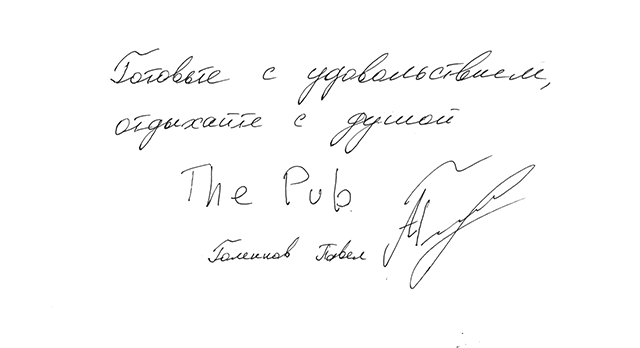 Готовьте с удовольствием,
отдыхайте с душой
The Pub
Павел